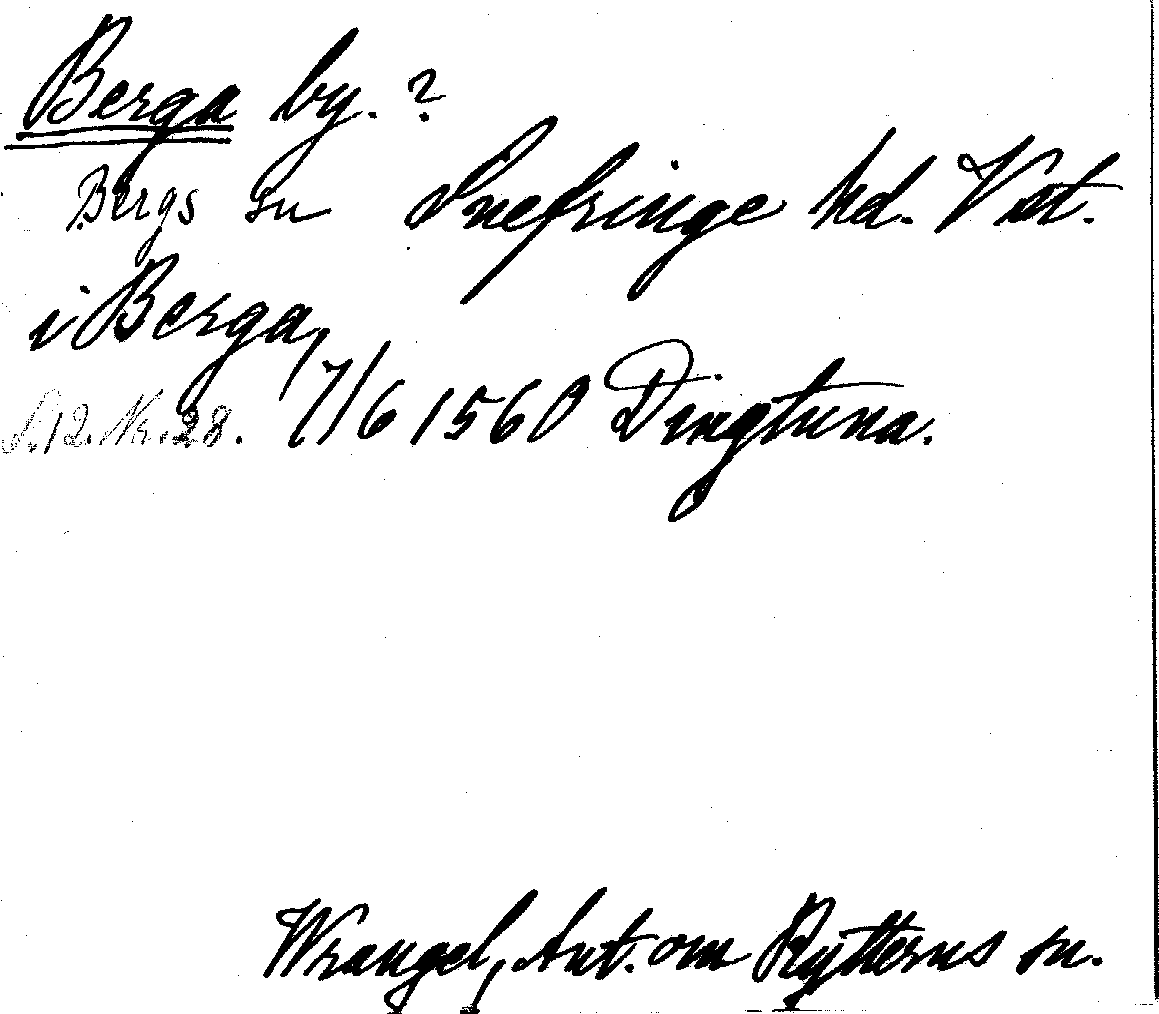 Berga by. ?
Bergs sn Snefringe hd. Vst.
i Berga,
S.12. Nr. 28. 17/6 1560 Dingtuna.
Wrangel, Ant. om Rytterns sn.